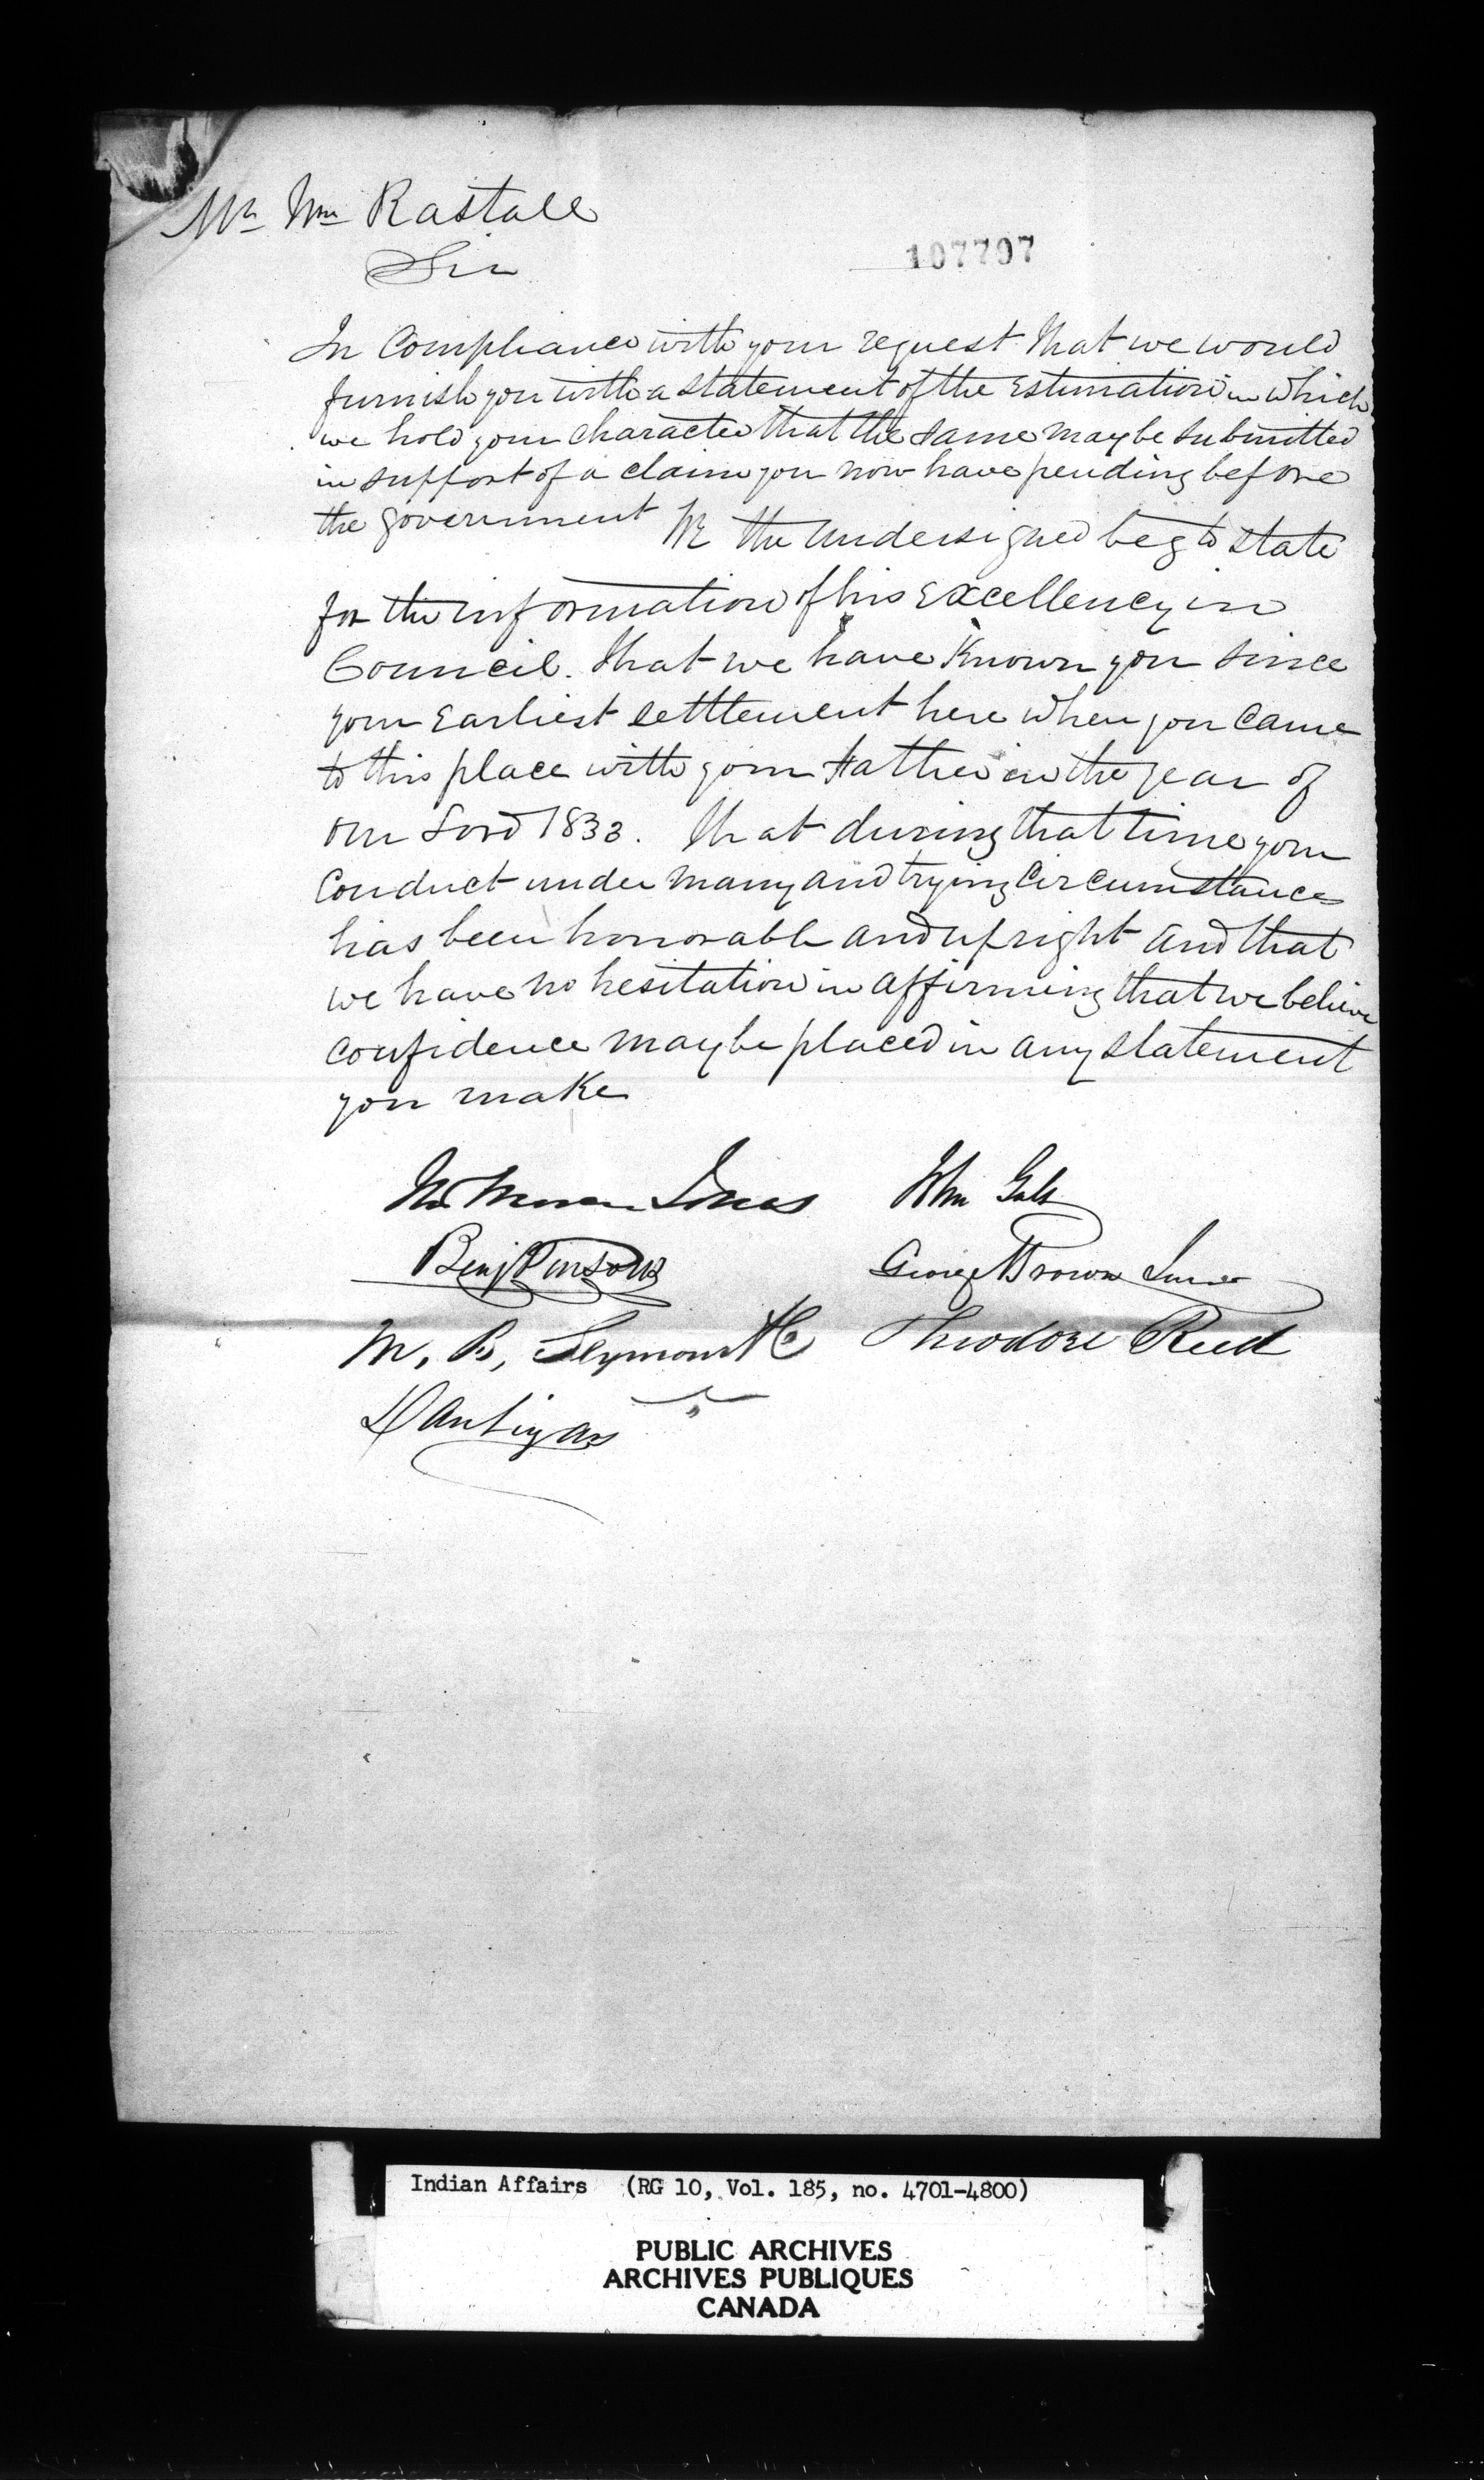 Mr Wm Rastall
Sir
107797
In Compliance with your request that we would
furnish you with a statement of the Estimation in which
we hold your character that the same may be submitted
in support of a claim you now have pending before
the government We the undersigned beg to state
for the information of his Excellency in
Council. that we have Known you since
your Earliest settlement here when you came
to this place with your Father in the year of
our Lord 1833. that during that time your
Conduct under many and trying Circumstances
has been honorable and upright and that
we have no hesitation in affirming that we believe
confidence may be placed in any statement
you make
John Galt
Benj Parsons
George Brown Junior
M. B. Seymour & Co
Theodore Reed
Indian Affairs (RG 10, Vol. 185, no. 4701-4800)
PUBLIC ARCHIVES
ARCHIVES PUBLIQUES
CANADA